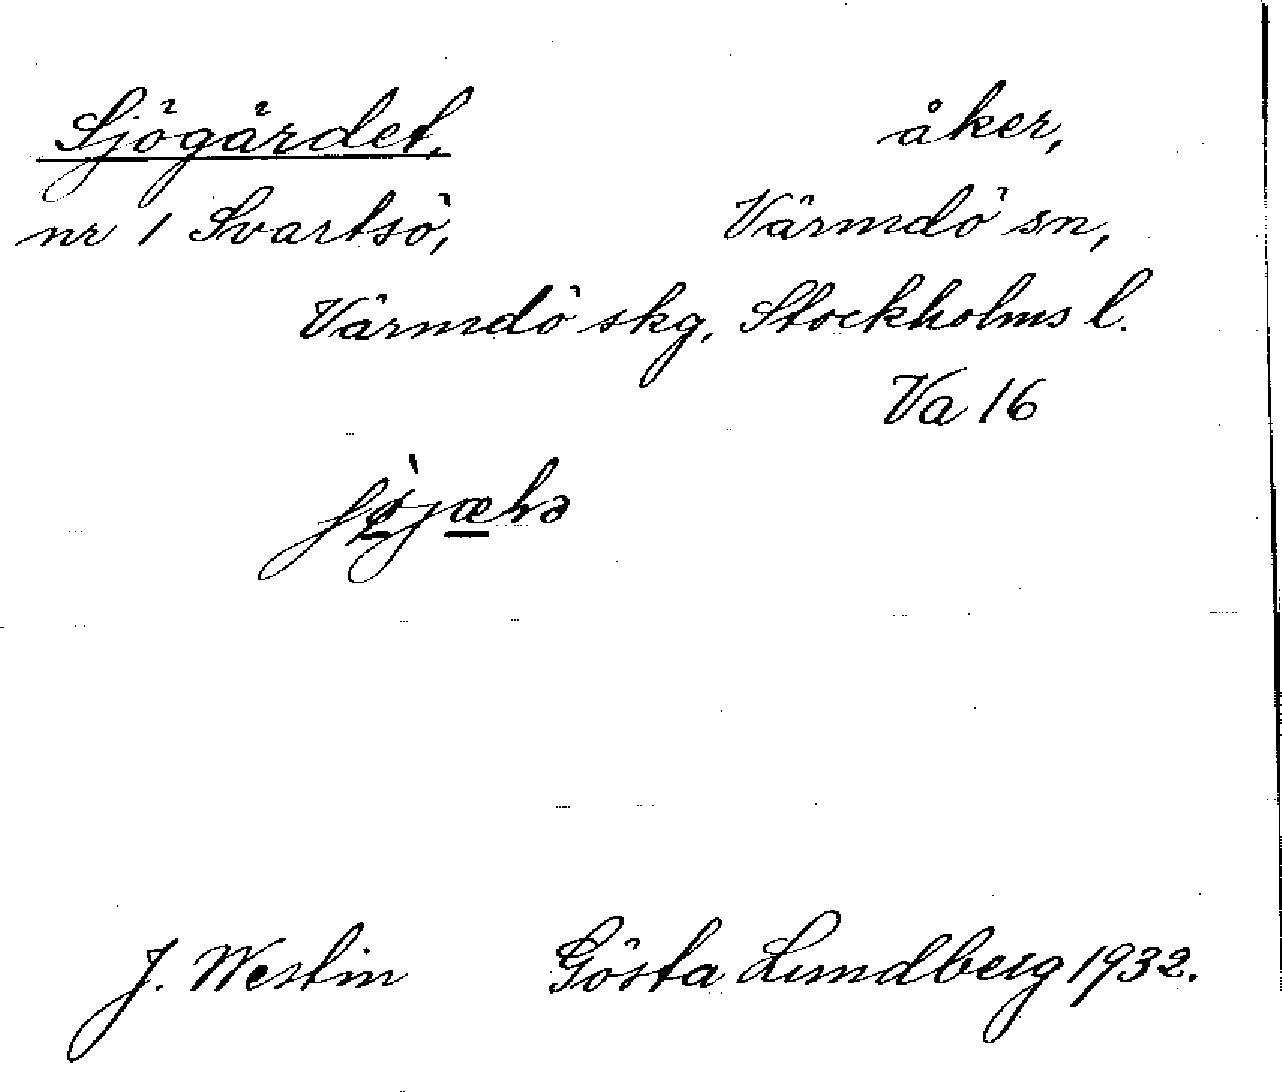 Sjögärdet, åker,
nr 1 Svartsö, Värmdö sn,
Värmdö skg, Stockholms l.
Va 16
J. Westin Gösta Lundberg 1932.